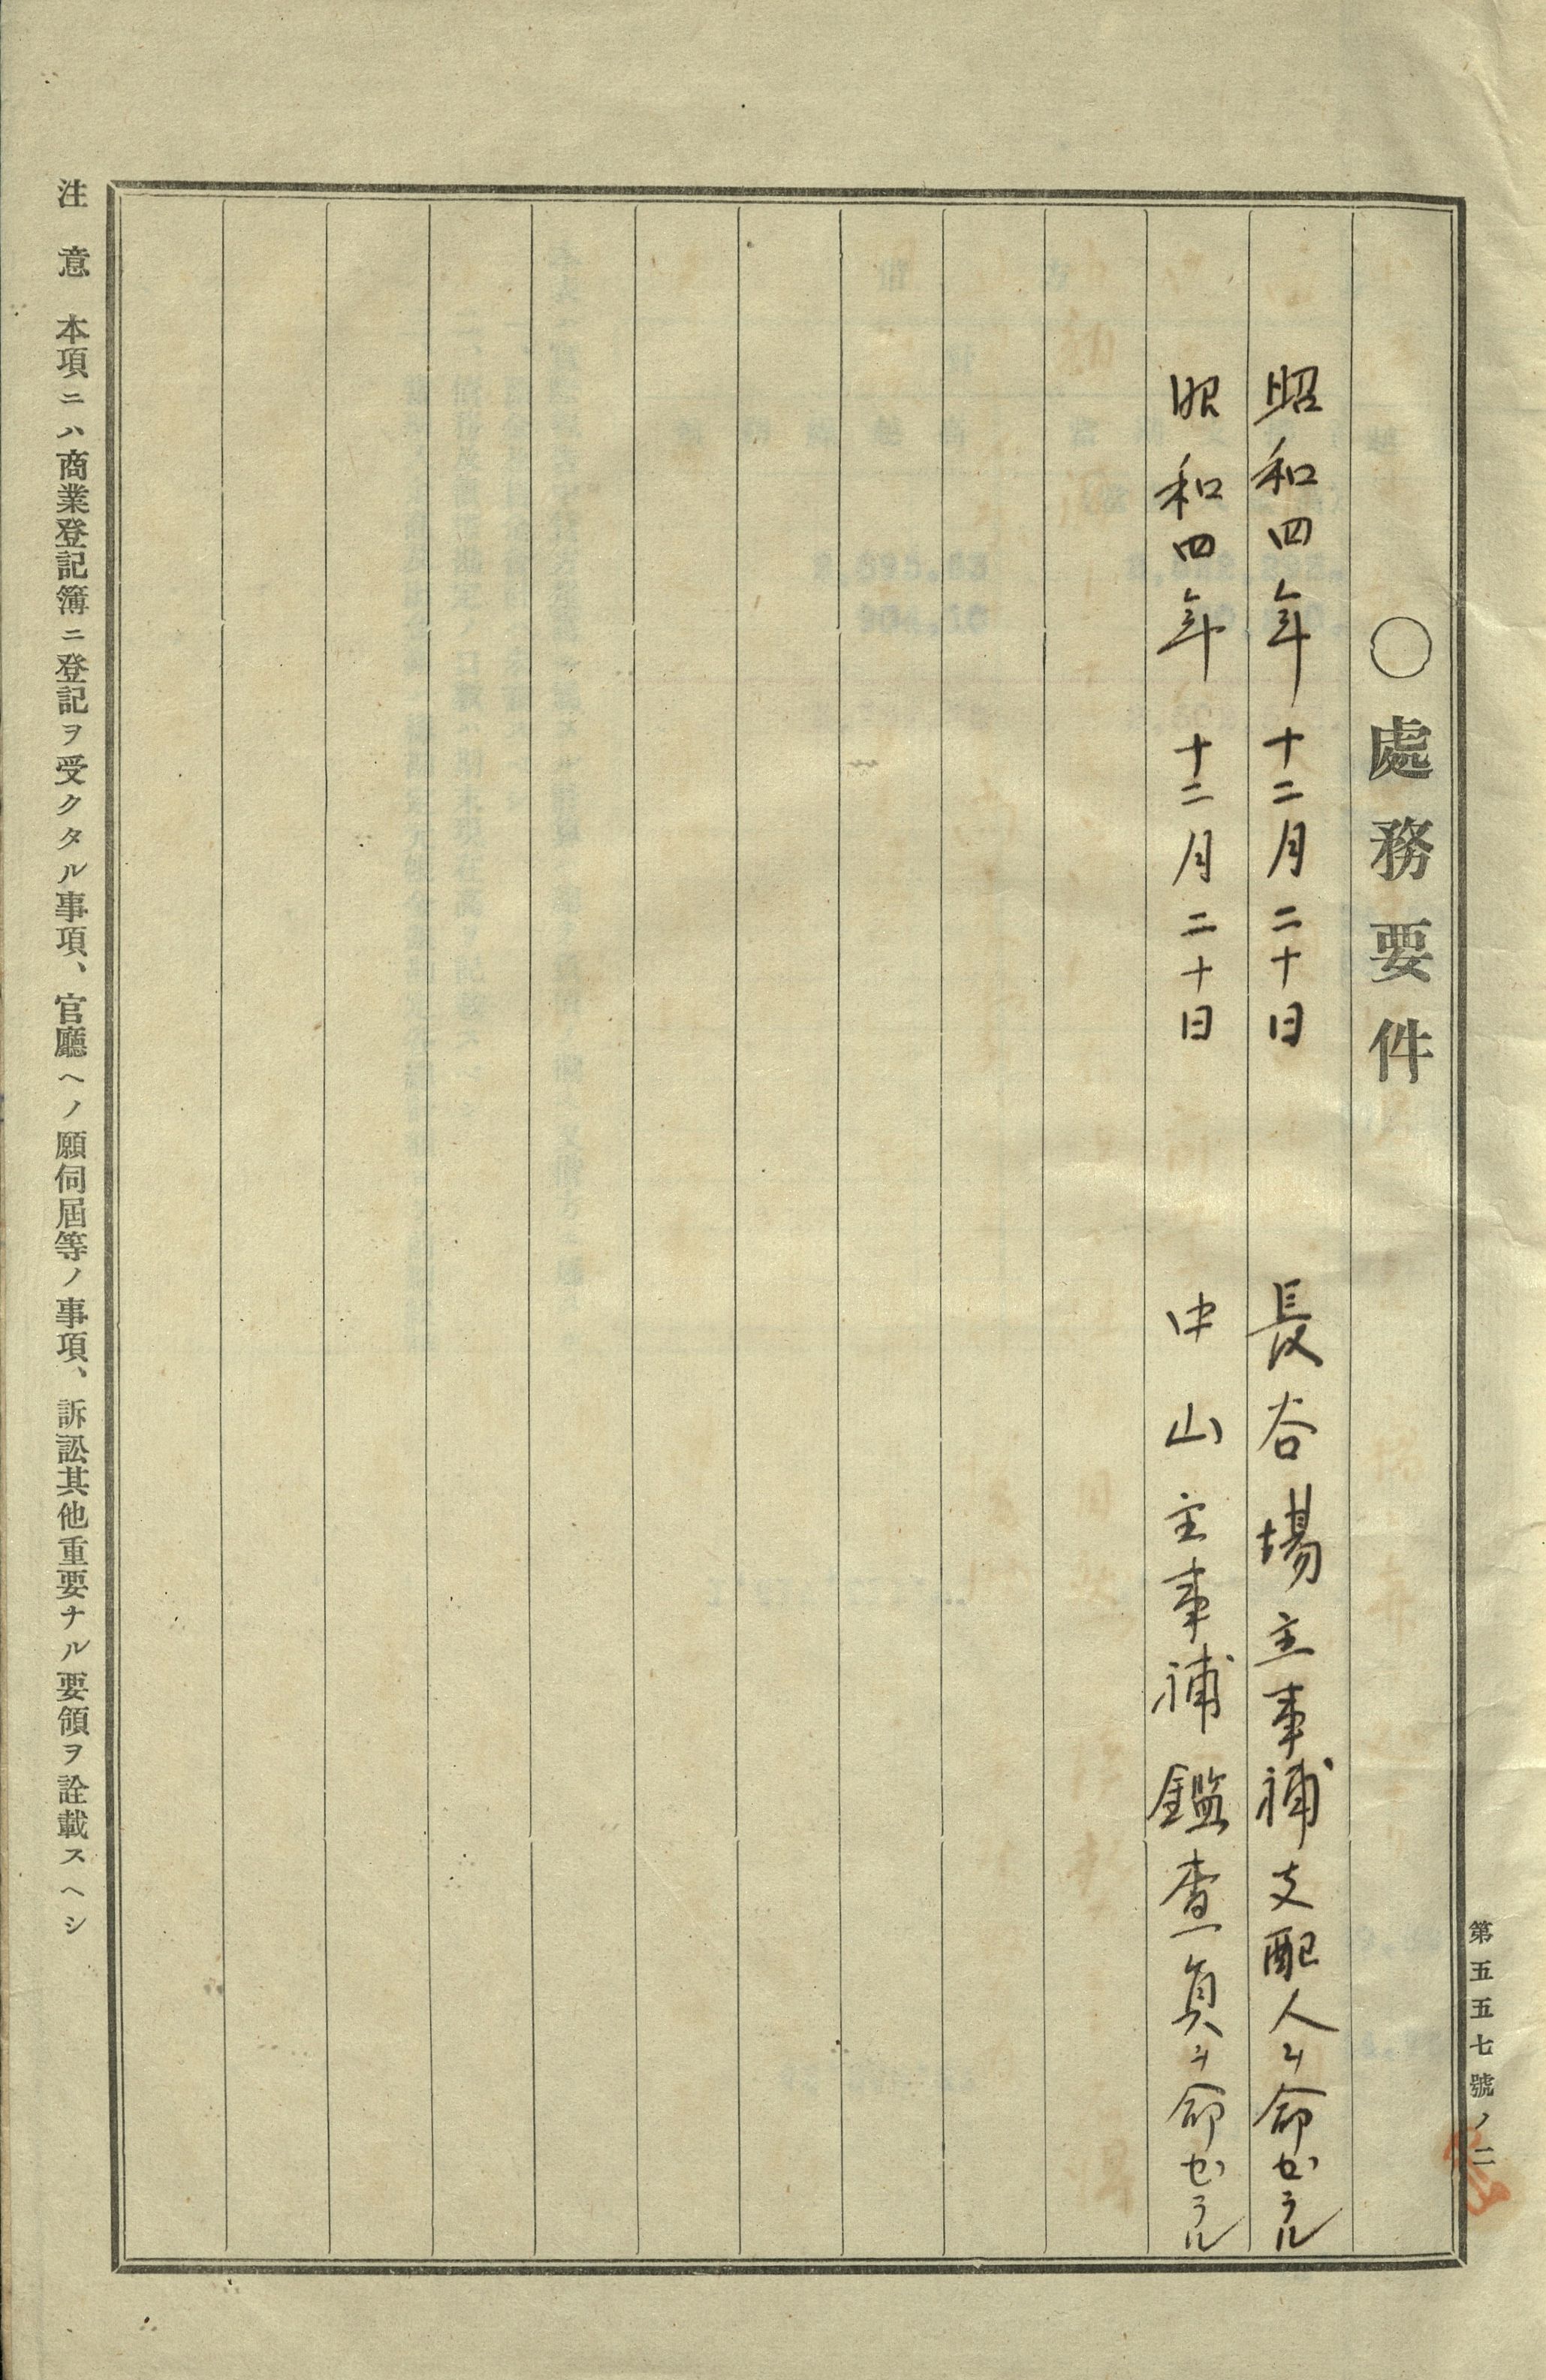 第五五七號ノ二
○處務要件
昭和四年十二月二十日 長谷場主事補支配人ヲ命セラル
昭和四年十二月二十日 中山主事補鑑査員ヲ命セラル
注意 本項ニハ商業登記簿ニ登記ヲ受クタル事項、官廳ヘノ願伺屆等ノ事項、訴訟其他重要ナル要領ヲ詮載スヘシ